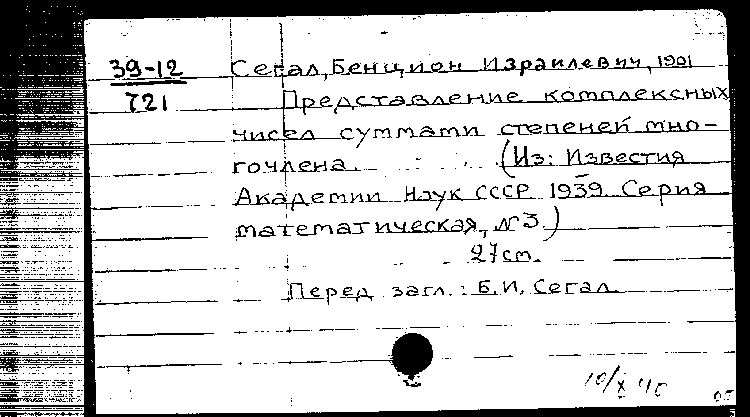 39-12 Сегал, Бенцион Израилевич, 1901
721 Представление комплексных
чисел суммами степеней мно-
гочлена. (Из: Известия
Академии Наук СССР 1939. Серия
математическая, №3.)
27cm.
Перед загл.: Б.И. Сегал.
10/X 40